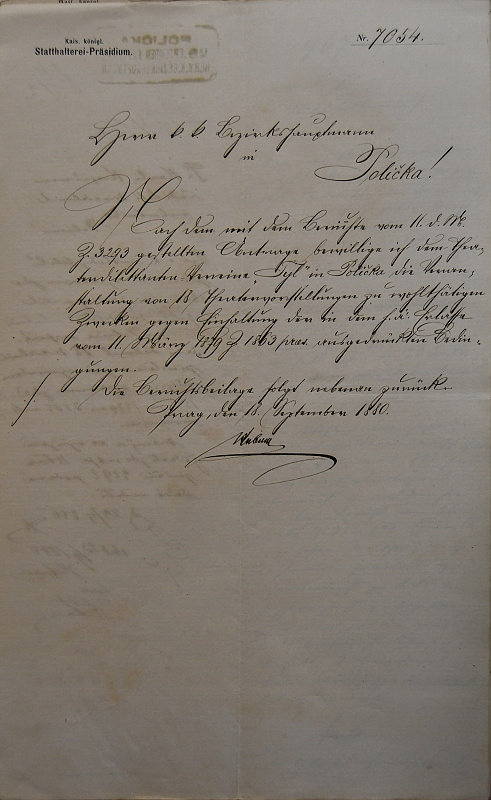 Kais. königl.
Statthalterei-Präsidium.
Nr. 7054.
POLIČKA
Herrn k k Bezirkshauptmann
in
Polička!
Nach dem mit dem Berichte vom 11. d. Mts.
Z 3293 gestellten Antrage bewillige ich dem Thea-
terdilettanten-Vereine „Tyl“ in Polička die Veran-
staltung von 18 Theatervorstellungen zu wohlthätigen
Zwecken gegen Einhaltung der in dem h. ä. Erlasse
vom 11. März 1879 Z 1863 praes. ausgedrückten Bedin-
gungen.
Die Berichtsbeilage folgt nebenan zurück.
Prag, den 18. September 1880.